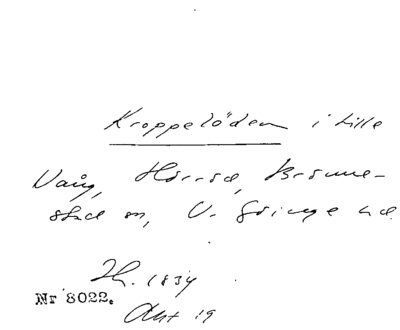 Kroppelöden i Lille
Vång, Hörröd, Brönne-
stad sn, V. Göinge hd.
Th. 1834
Nr 8022.
Akt 19